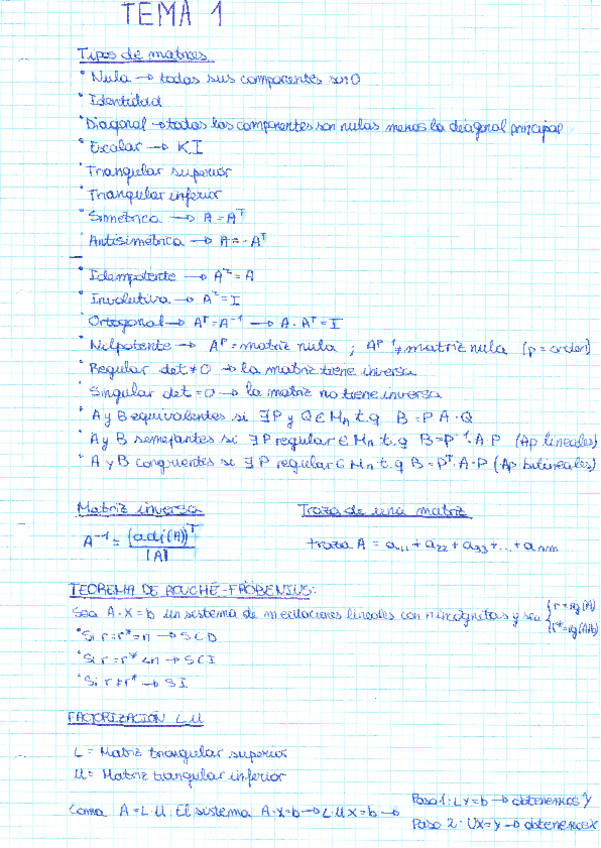 TEMA 1
Tipos de matrices
· Nula → todas sus componentes son 0
· Identidad
· Diagonal → todas las componentes son nulas menos la diagonal principal
· Escalar → K I
· Triangular superior
· Triangular inferior
· Simétrica → A = Aᵀ
· Antisimétrica → A = -Aᵀ
· Idempotente → A² = A
· Involutiva → A² = I
· Ortogonal → Aᵀ = A⁻¹ → A · Aᵀ = I
· Nilpotente → Aᵖ = matriz nula ; Aᵖ⁻¹ ≠ matriz nula (p = orden)
· Regular det ≠ 0 → la matriz tiene inversa
· Singular det = 0 → la matriz no tiene inversa
· A y B equivalentes si ∃ P y Q ∈ Mn t.q B = P A · Q
· A y B semejantes si ∃ P regular ∈ Mn t.q B = P⁻¹ · A · P (Ap lineales)
· A y B congruentes si ∃ P regular ∈ Mn t.q B = Pᵀ · A · P (Ap bilineales)
Matriz inversa
A⁻¹ = (adj(A))ᵀ / |A|
Traza de una matriz
traza A = a₁₁ + a₂₂ + a₃₃ + ... + aₙₙ
TEOREMA DE ROUCHÉ-FRÖBENIUS:
Sea A · X = b un sistema de m ecuaciones lineales con n incógnitas y sea { r = rg(A)
r* = rg(A|b)
· Si r = r* = n → SCD
· Si r = r* < n → SCI
· Si r ≠ r* → SI
FACTORIZACIÓN LU
L = Matriz triangular superior
U = Matriz triangular inferior
Como A = L · U. El sistema A · x = b → L · U X = b →
Paso 1: L Y = b → obtenemos Y
Paso 2: UX = Y → obtenemos X